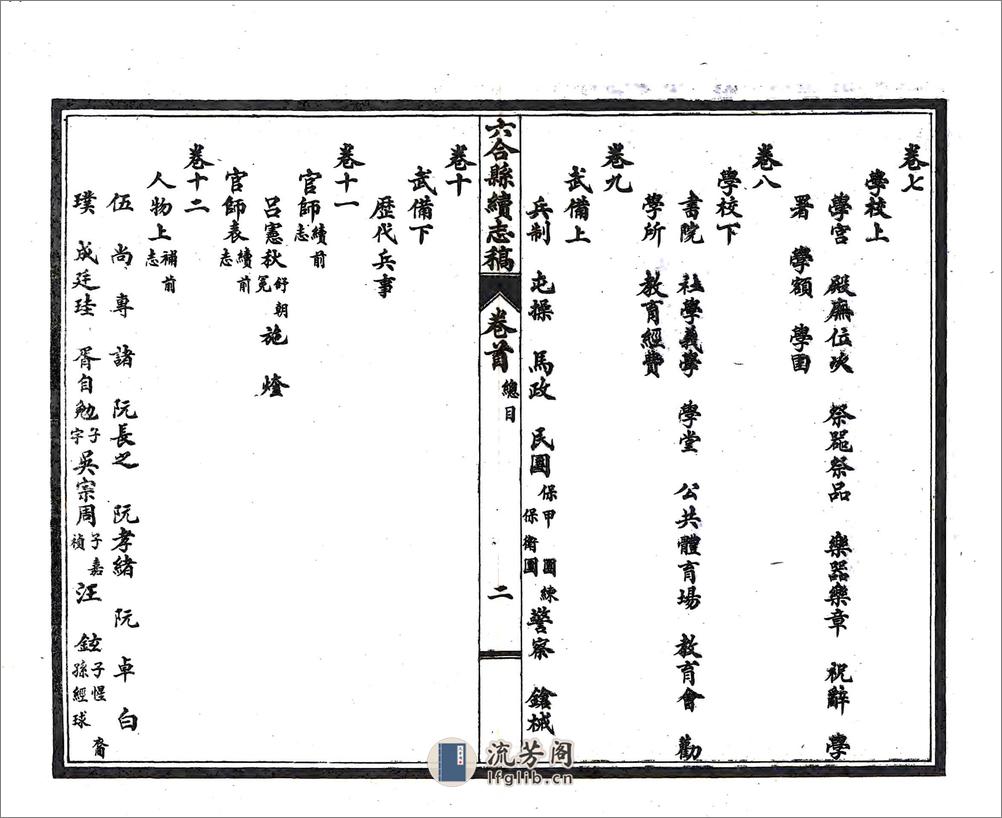 卷七
學校上
學宮 殿廡位次 祭器祭品 樂器樂章 祝辭 學
署 學額 學田
卷八
學校下
書院 社學義學 學堂 公共體育場 教育會 勸
學所 教育經費
卷九
武備上
兵制 屯操 馬政 民團 保甲 團練 保衛團 警察 鎗械
六合縣續志稿 卷首 總目 二
卷十
武備下
歷代兵事
卷十一
官師志 續前
呂憲秋 舒朝冕 施燈
官師表 續前志
卷十二
人物上 補前志
伍尚專 諸 阮長之 阮孝緒 阮卓 白
璞 成廷珪 胥自勉 子宇 吳宗周 子嘉禎 汪鉉 子惺 孫經球 裔
流芳阁
lfglib.cn